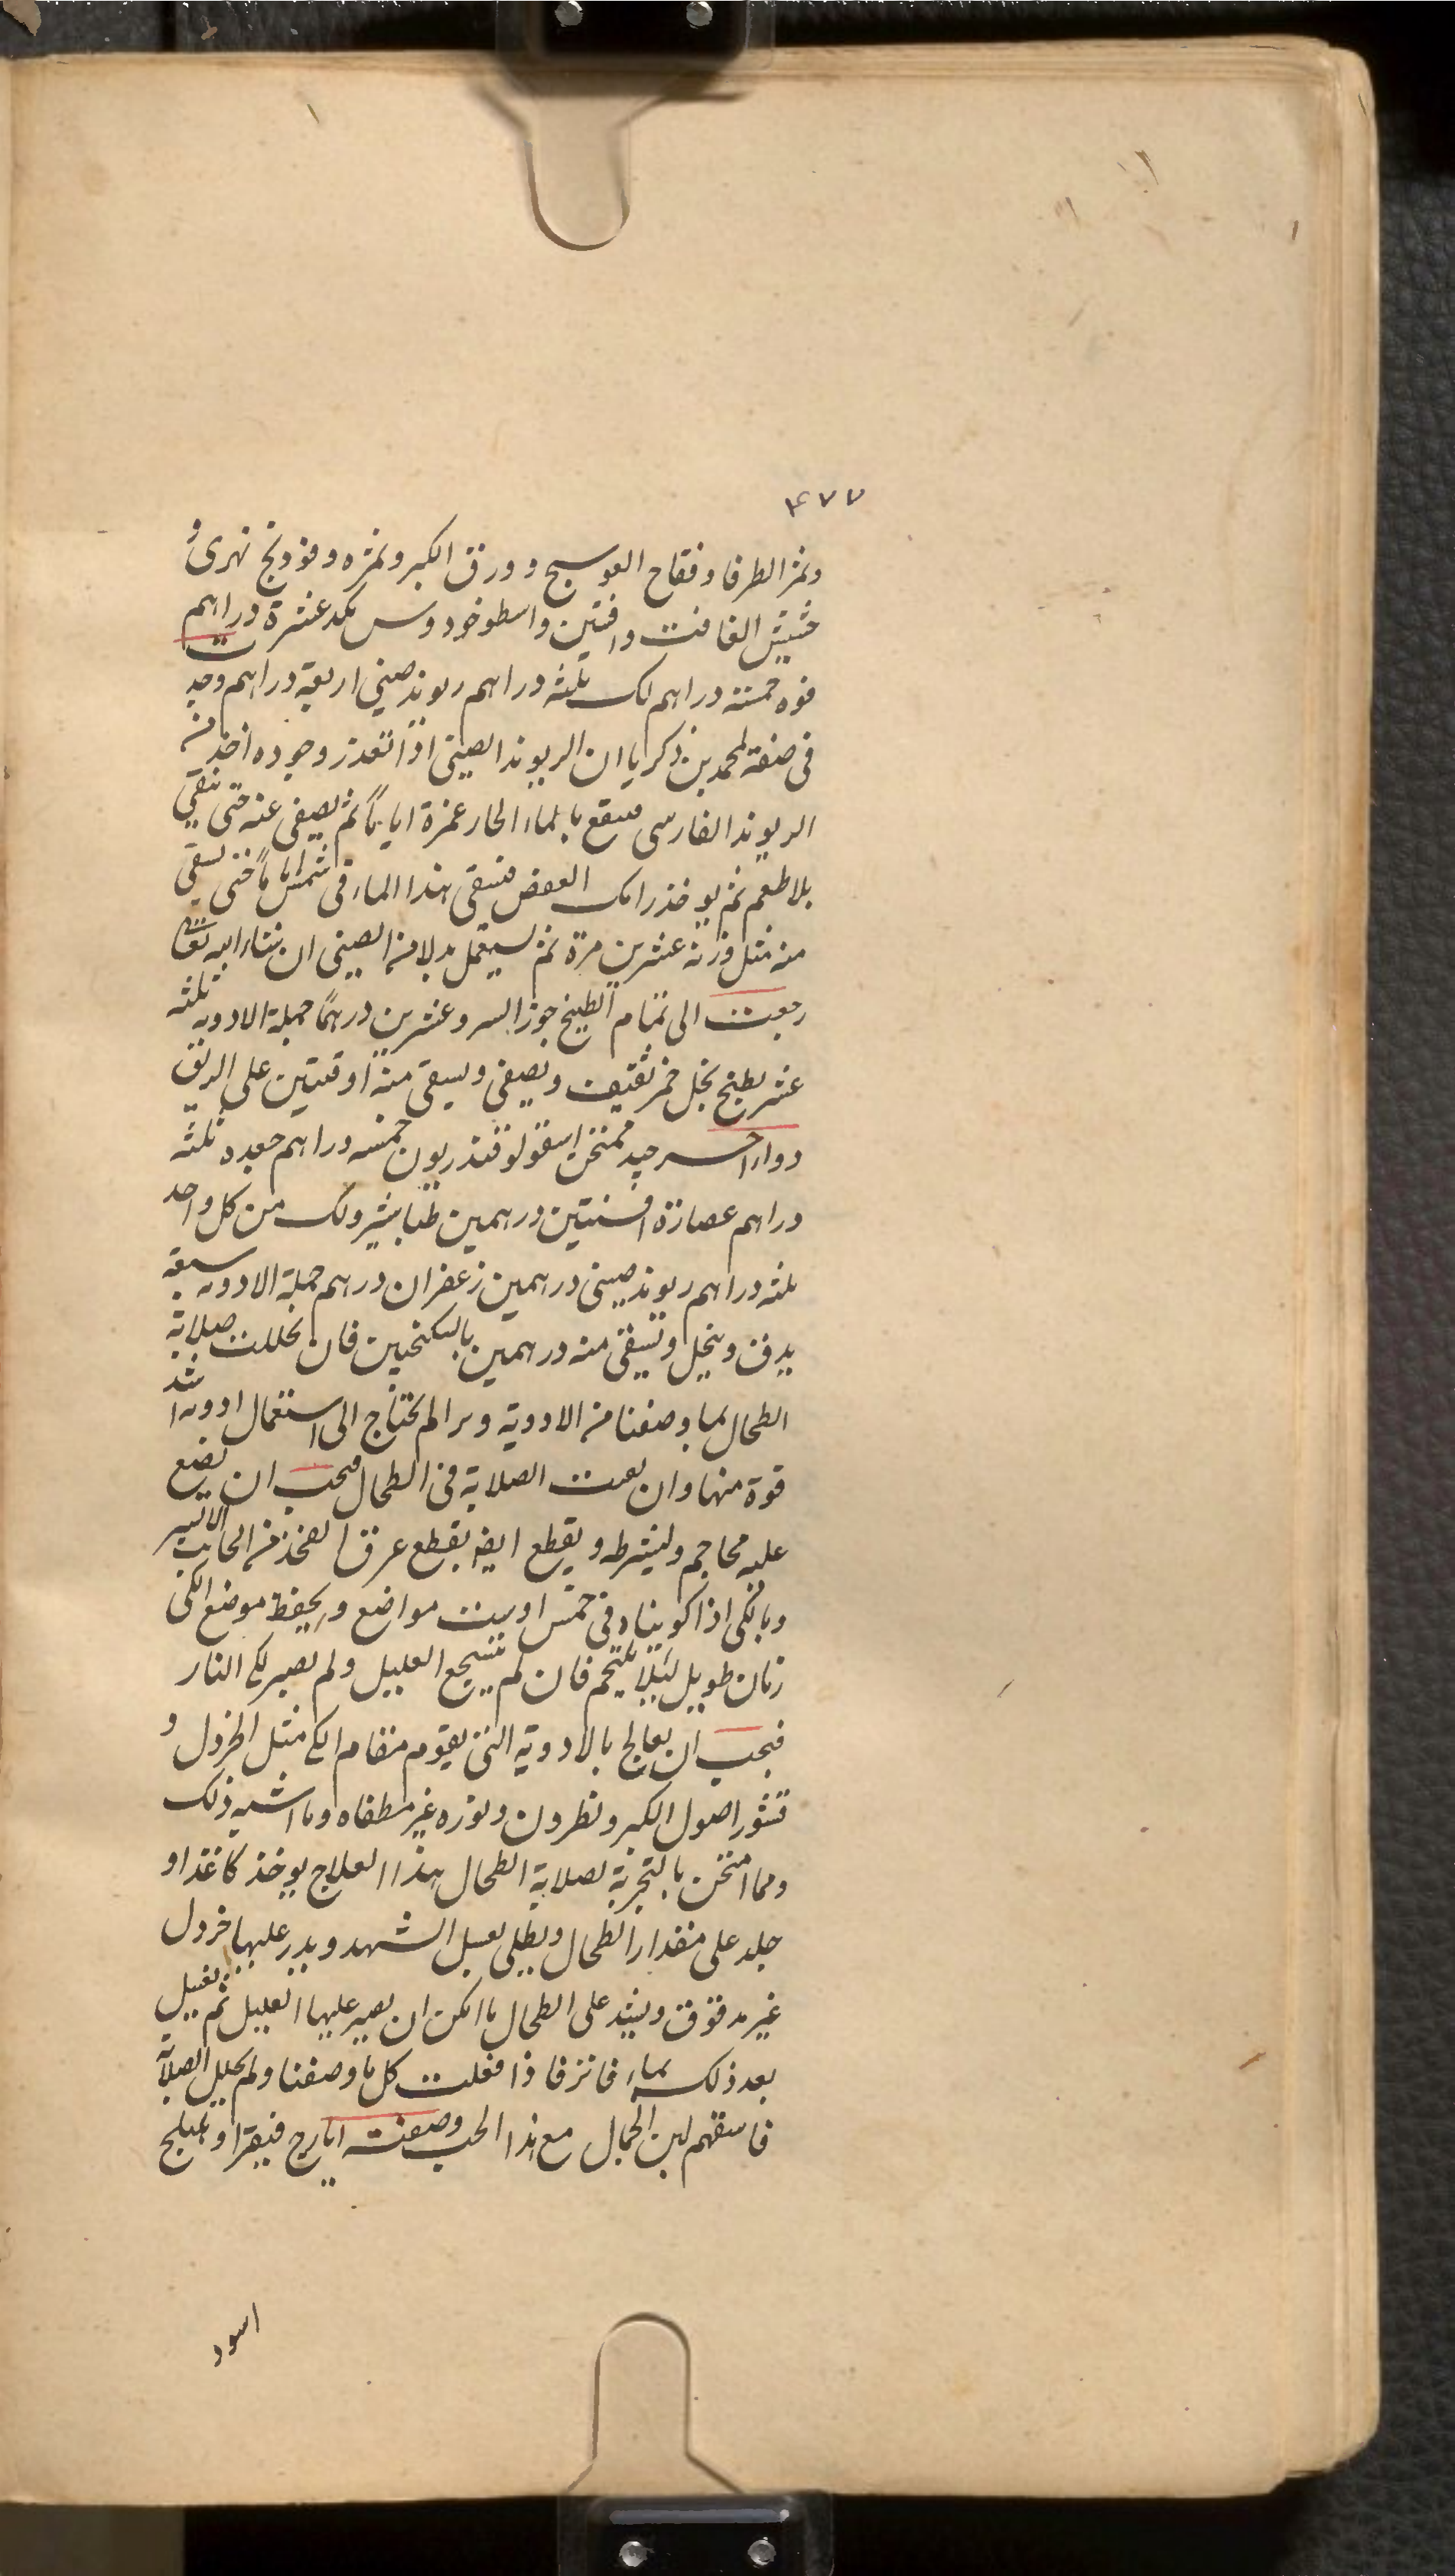 ۴۷۷
وثمر الطرفا وفقاح العوسج وورق الكبر وثمره وفودنج نهرى و
حشيش الغافت وافتين واسطوخودوس مكد عشرة دراهم
فوه خمسته دراهم لك ثلثه دراهم ريوند صينى اربعة دراهم وجدت
فى صنعة لمحمد بن زكريا ان الريوند الصينى اذا تعذر وجوده اخذ من
الريوند الفارسى فينقع بالماء الحار عمرة اياماً ثم يصفى عنه حتى ينقى
بلا طعم ثم يوخذ رامك العفص فيسقى هذا الماء فى شمس اياماً حتى يسقى
منه مثل وزنه عشرين مرة ثم يستعمل بدلا من الصينى ان شاء الله تعالى
رجعت الى تمام الطبيخ جوز السرو عشرين درهماً جملة الادويه ثلثه
عشر يطبخ بخل خمر ثقيف ويصفى ويسقى منه اوقيتين على الريق
دواء اخر جيد ممتحن اسقولوقندريون خمسه دراهم جعده ثلثه
دراهم عصارة افسنتين درهمين طباشير ولك من كل واحد
ثلثه دراهم ريوند صينى درهمين زعفران درهم جملة الادويه سبعة
يدق وينخل ويسقى منه درهمين بالسكنجبين فان تحللت صلابة
الطحال بما وصفنا من الادوية وبرا لم يحتاج الى استعمال ادويه اشد
قوة منها وان بقيت الصلابة فى الطحال فيجب ان يضع
عليه محاجم وليشرط ويقطع ايضا بقطع عرق الفخذ من الجانب الايسر
وبالكى اذا كويناه فى خمس او ست مواضع ويحفظ موضع الكى
زمان طويل لئلا يلتحم فان لم يتشجع العليل ولم يصبر لكى النار
فيجب ان يعالج بالادوية التى يقوم مقام الكى مثل الخردل و
قشور اصول الكبر ونطرون ونوره غير مطفاه وما اشبه ذلك
ومما امتحن بالتجربة لصلابة الطحال هذا العلاج يوخذ كاغذ او
جلد على مقدار الطحال ويطلى بعسل الشهد ويذر عليها خردل
غير مدقوق ويشد على الطحال ما امكن ان يصبر عليها العليل ثم يغسل
بعد ذلك بماء فاتر فاذا فعلت كل ما وصفنا ولم يحلل الصلابة
فاسقهم لبن الجمال مع هذا الحب وصفته ايارج فيقرا وهليلج
اسود